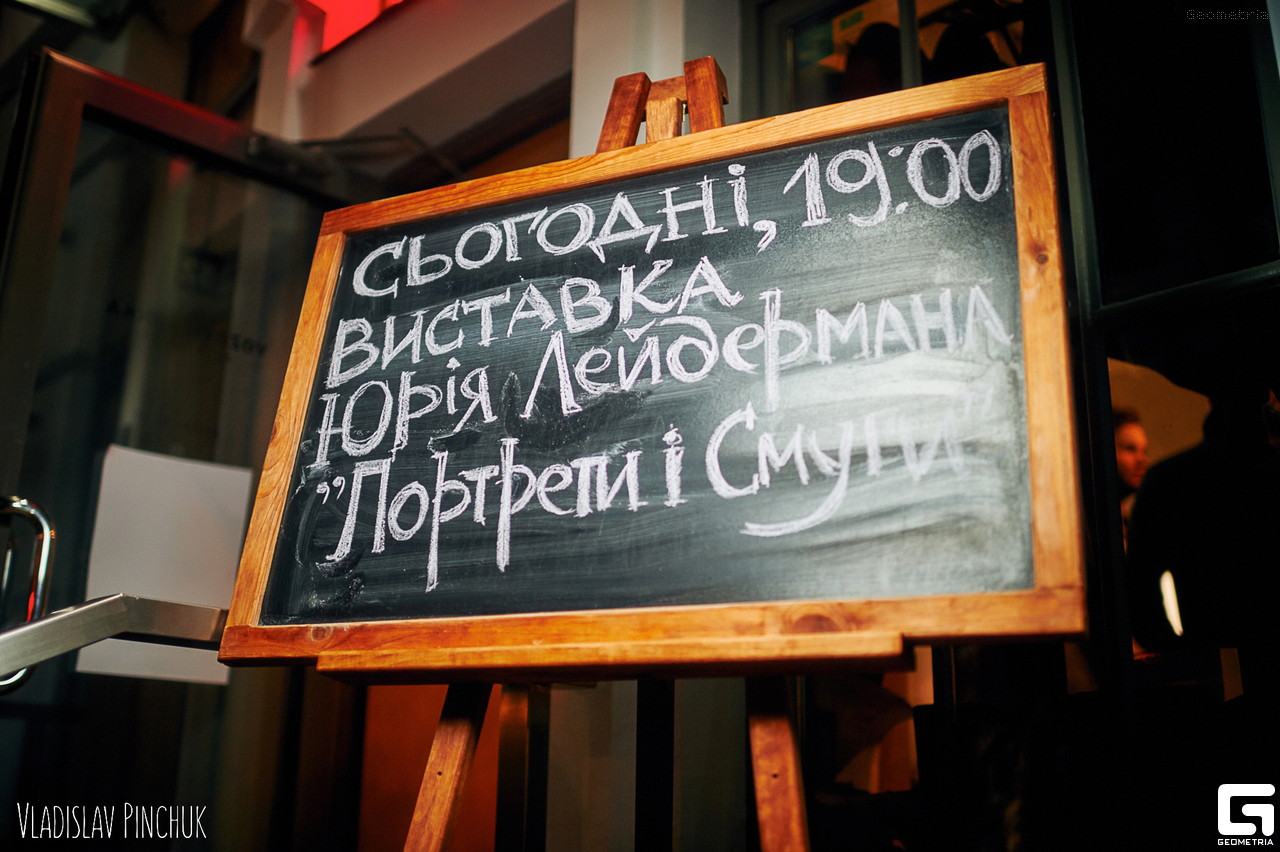 Geometria
Сьогодні, 19:00
виставка
Юрія Лейдермана
"Портрети і Смуги"
VLADISLAV PINCHUK
GEOMETRIA